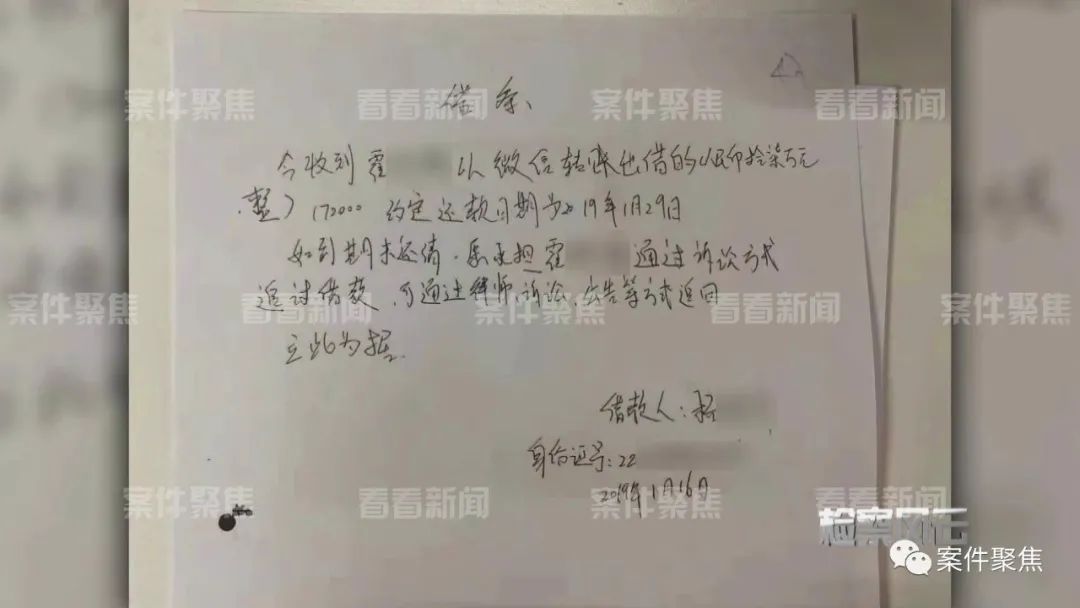 借条、
今收到霍 以微信转账出借的人民币拾柒万元
(整) 170000 约定还款日期为2019年1月29日
如到期未还清, 霍 通过诉讼方式
追讨借款,可通过律师,诉讼,公告等方式追回
立此为据.
借款人:
身份证号:22
2019年1月16日
案件聚焦 看看新闻 案件聚焦 看看新闻
案件聚焦 看看新闻 案件聚焦 看看新闻 案件聚焦
案件聚焦 看看新闻 案件聚焦 看看新闻
检察风云
案件聚焦